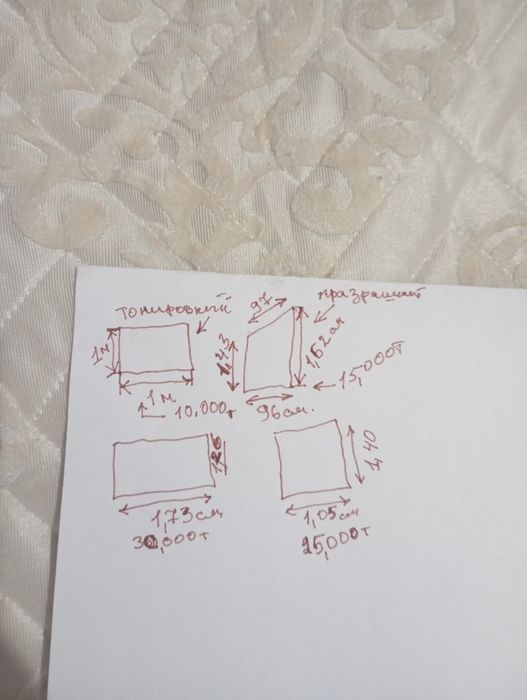 тонировный
празрашний
97
1м
1,43
1,52 см
15,000т
1м
10,000т
96см.
1,26
1,40
1,73см
1,05см
30,000т
25,000т